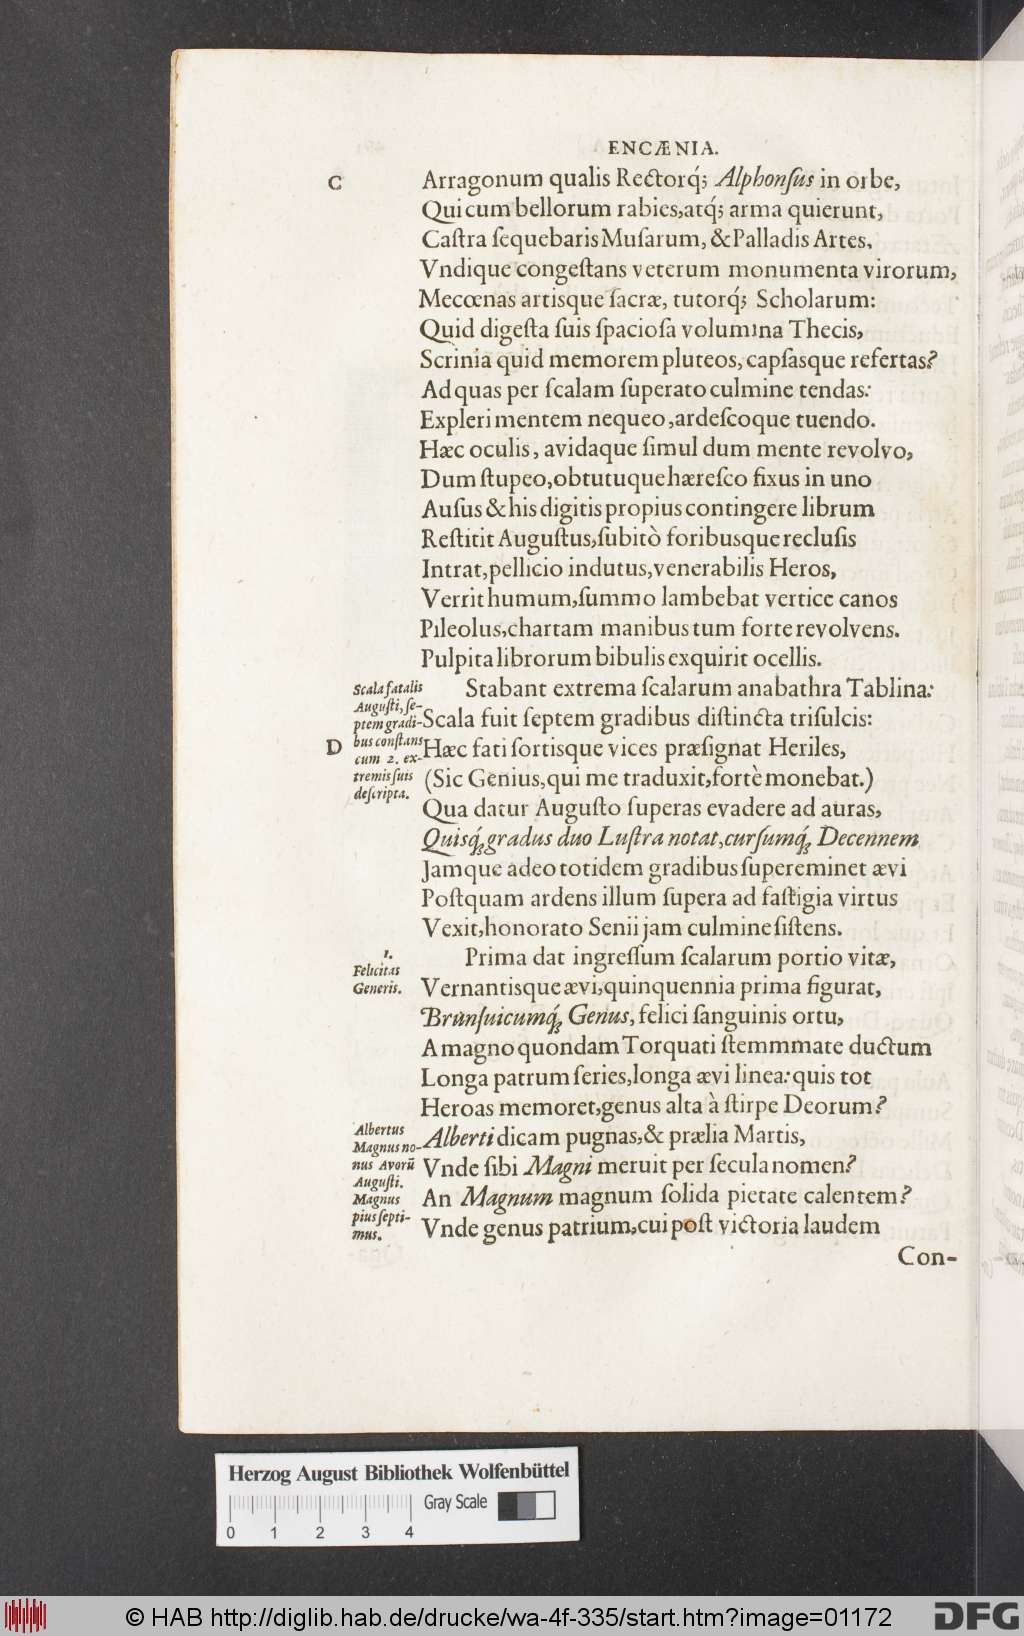 ENCÆNIA.
C
Arragonum qualis Rectorq́; Alphonſus in orbe,
Qui cum bellorum rabies, atq́; arma quierunt,
Caſtra ſequebaris Muſarum, & Palladis Artes,
Vndique congeſtans veterum monumenta virorum,
Mecœnas artisque ſacræ, tutorq́; Scholarum:
Quid digeſta ſuis ſpacioſa volumina Thecis,
Scrinia quid memorem pluteos, capſasque refertas?
Ad quas per ſcalam ſuperato culmine tendas:
Expleri mentem nequeo, ardeſcoque tuendo.
Hæc oculis, avidaque ſimul dum mente revolvo,
Dum ſtupeo, obtutuque hæreſco fixus in uno
Auſus & his digitis propius contingere librum
Reſtitit Auguſtus, ſubitò foribusque recluſis
Intrat, pellicio indutus, venerabilis Heros,
Verrit humum, ſummo lambebat vertice canos
Pileolus, chartam manibus tum forte revolvens.
Pulpita librorum bibulis exquirit ocellis.
Stabant extrema ſcalarum anabathra Tablina:
Scala fuit ſeptem gradibus diſtincta triſulcis:
D
Hæc fati ſortisque vices præſignat Heriles,
(Sic Genius, qui me traduxit, fortè monebat.)
Qua datur Auguſto ſuperas evadere ad auras,
Quisq́; gradus duo Luſtra notat, curſumq́; Decennem
Jamque adeo totidem gradibus ſupereminet ævi
Poſtquam ardens illum ſupera ad faſtigia virtus
Vexit, honorato Senii jam culmine ſiſtens.
Scala fatalis
Auguſti, ſe-
ptem gradi-
bus conſtans
cum 2. ex-
tremis ſuis
deſcripta.
Prima dat ingreſſum ſcalarum portio vitæ,
Vernantisque ævi, quinquennia prima figurat,
Brunſuicumq́; Genus, felici ſanguinis ortu,
A magno quondam Torquati ſtemmmate ductum
Longa patrum ſeries, longa ævi linea: quis tot
Heroas memoret, genus alta à ſtirpe Deorum?
1.
Felicitas
Generis.
Alberti dicam pugnas, & prælia Martis,
Vnde ſibi Magni meruit per ſecula nomen?
An Magnum magnum ſolida pietate calentem?
Vnde genus patrium, cui poſt victoria laudem
Albertus
Magnus no-
nus Avorũ
Auguſti.
Magnus
pius ſepti-
mus.
Con-
Herzog August Bibliothek Wolfenbüttel
Gray Scale
0 1 2 3 4
© HAB http://diglib.hab.de/drucke/wa-4f-335/start.htm?image=01172
DFG